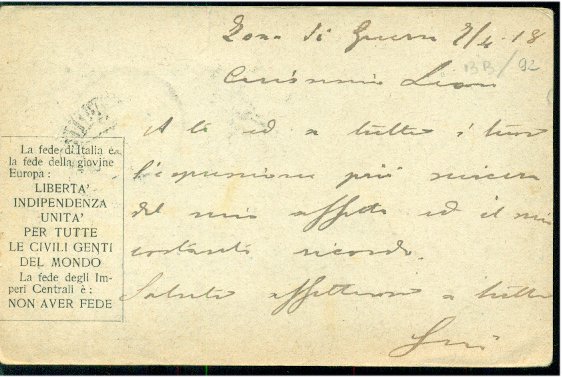 Zona di Guerra 7/4.18
BB/92
Carissimo
A te ed a tutti i tuoi
l'espressione più sincera
del mio affetto ed il mio
costante ricordo.
Saluti affettuosi a tutti
La fede d'Italia è
la fede della giovine
Europa:
LIBERTA'
INDIPENDENZA
UNITA'
PER TUTTE
LE CIVILI GENTI
DEL MONDO
La fede degli Im-
peri Centrali è:
NON AVER FEDE